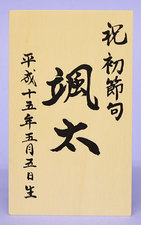 祝初節句
颯太
平成十五年五月五日生